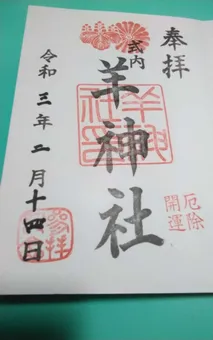 奉拝
式内
羊神社
厄除
開運
令和三年二月十四日
参拝